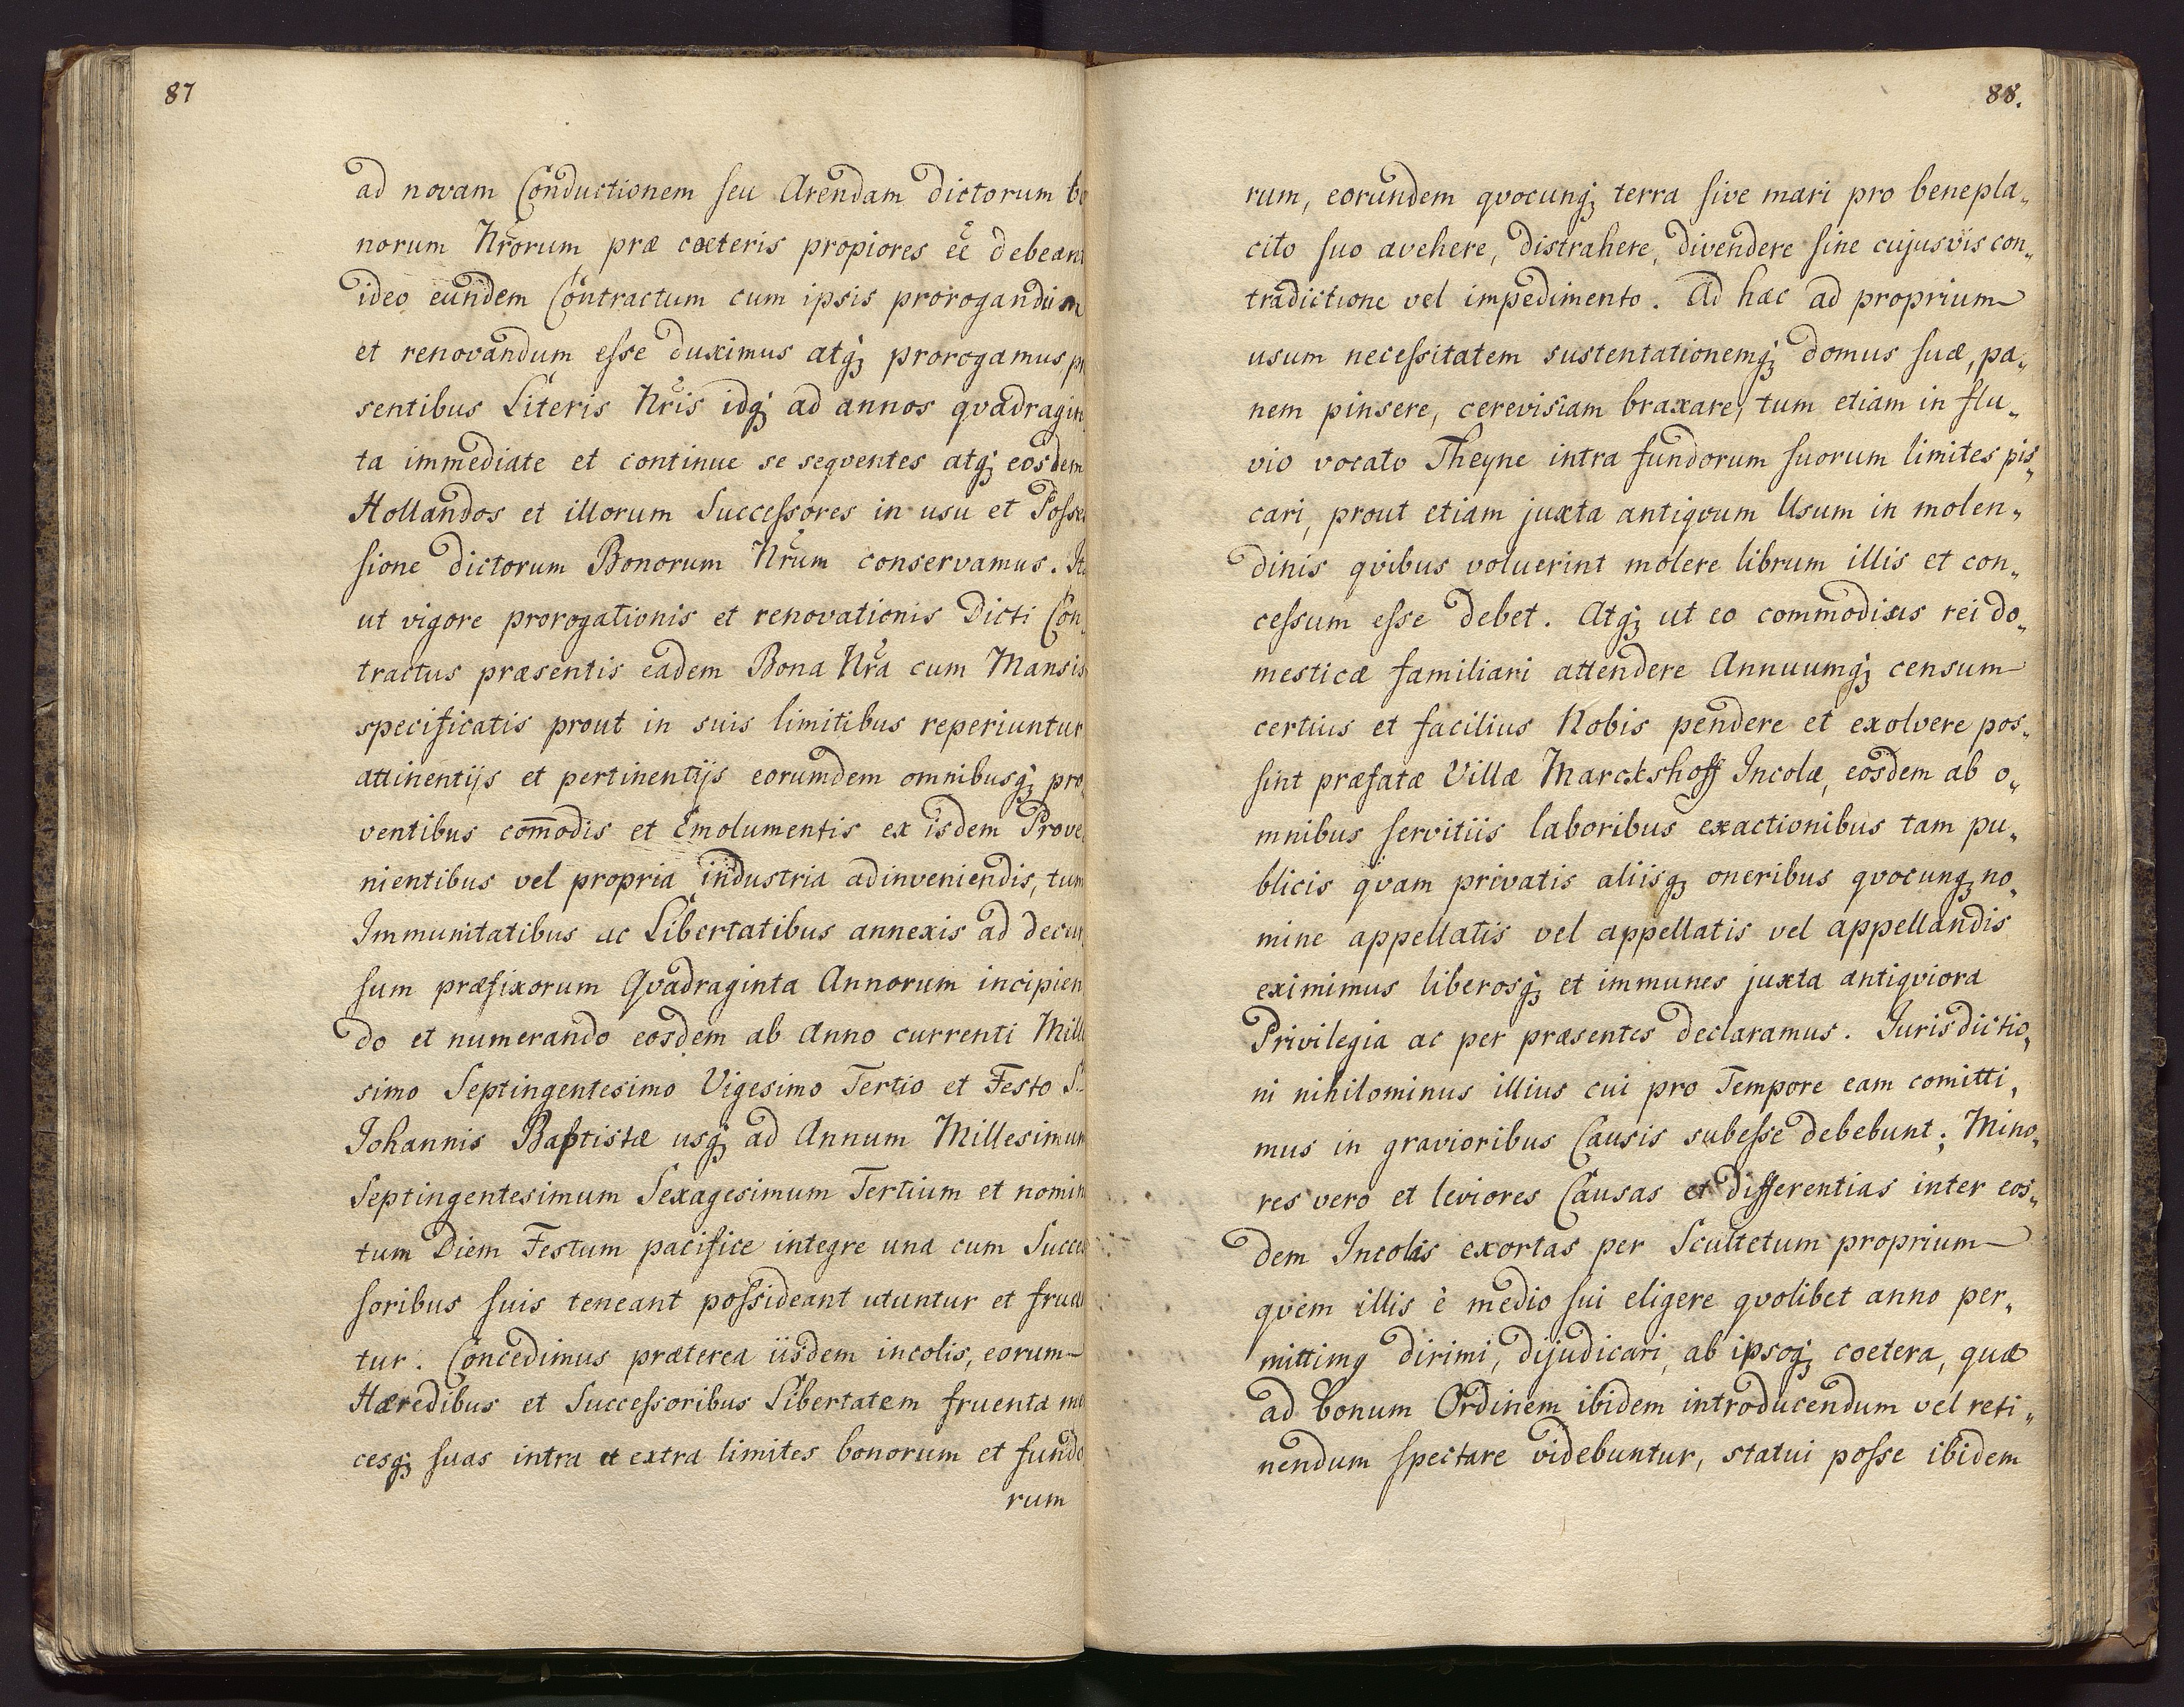 87
ad novam Conductionem seu Arendam dictorum bo
norum Nrorum præ cæteris propiores ee debeant
ideo eundem Contractum cum ipsis prorogandum
et renovandum esse duximus atq; prorogamus præ
sentibus Literis Nris idq; ad annos qvadragin
ta immediate et continue se seqventes atq; eosdem
Hollandos et illorum Successores in usu et Posses
sione dictorum Bonorum Nrum conservamus. Ita
ut vigore prorogationis et renovationis Dicti Con„
tractus præsentis eadem Bona Nra cum Mansis
specificatis prout in suis limitibus reperiuntur
attinentijs et pertinentijs eorumdem omnibusq; pro„
ventibus com̄odis et Emolumentis ex isdem Prove„
nientibus vel propria industria adinveniendis, tum
Immunitatibus ac Libertatibus annexis ad decur
sum præfixorum Qvadraginta Annorum incipien
do et numerando eosdem ab Anno currenti Mille
simo Septingentesimo Vigesimo Tertio et Festo S.
Johannis Baptistæ usq; ad Annum Millesimum
Septingentesimum Sexagesimum Tertium et nomina
tum Diem Festum pacifice integre una cum Succes
soribus suis teneant possideant utuntur et fruan
tur. Concedimus præterea iisdem incolis, eorum
Hæredibus et Successoribus Libertatem fruenta mer
cesq; suas intra et extra limites bonorum et fundo
rum
88.
rum, eorundem qvocunq; terra sive mari pro benepla„
cito suo avehere, distrahere, divendere sine cujusvis con„
tradictione vel impedimento. Ad hæc ad proprium
usum necessitatem sustentationemq; domus suæ, pa„
nem pinsere, cerevisiam braxare, tum etiam in flu„
vio vocato Theyne intra fundorum suorum limites pis„
cari, prout etiam juxta antiqvum Usum in molen„
dinis qvibus voluerint molere librum illis et con„
cessum esse debet. Atq; ut eo commodius rei do„
mesticæ familiari attendere Annuumq; censum
certius et facilius Nobis pendere et exolvere pos„
sint præfatæ Villæ Marckshoff Incolæ, eosdem ab o„
mnibus servitiis laboribus exactionibus tam pu„
blicis qvam privatis aliisq; oneribus qvocunq; no„
mine appellatis vel appellatis vel appellandis
eximimus liberosq; et immunes juxta antiqviora
Privilegia ac per præsentes declaramus. Jurisdictio„
ni nihilominus illius cui pro Tempore eam comitti„
mus in gravioribus Causis subesse debebunt; Mino„
res vero et leviores Causas et differentias inter eos„
dem Incolas exortas per Scultetum proprium
qvem illis è medio sui eligere qvolibet anno per„
mittimq dirimi, dijudicari, ab ipsoq; coetera, quæ
ad bonum Ordinem ibidem introducendum vel reti„
nendum spectare videbuntur, statui posse ibidem